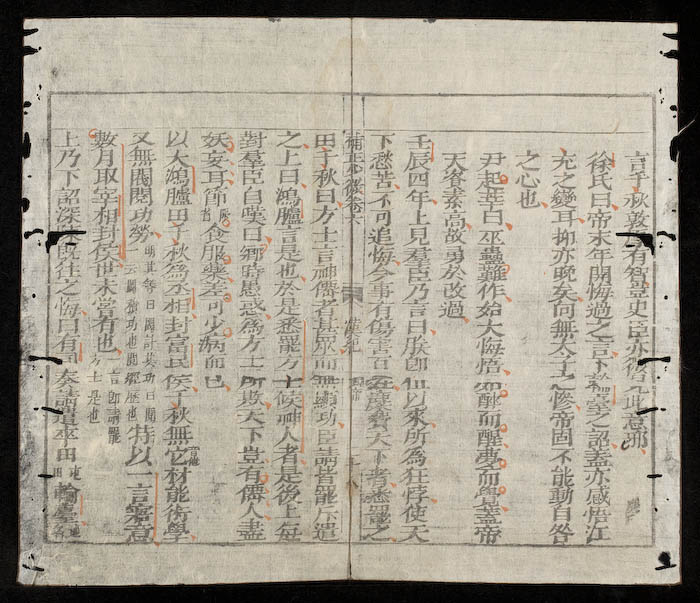 言千秋敦厚有智豈史臣亦
徐氏曰帝末年聞悔過之言下輪臺之詔蓋亦感悟江
充之變耳抑亦晩矣向無太子之慘帝固不能動自咎
之心也
尹起莘曰巫蠱難作始大悔悟如醉而醒夢而覺蓋帝
天資素高故勇於改過
壬辰四年上見羣臣乃言曰朕卽位以來所爲狂悖使天
下愁苦不可追悔今事有傷害百姓糜費天下者悉罷之
補正少微卷六
漢紀
田千秋曰方士言神僊者甚眾而無顯功臣請皆罷斥遣
之上曰鴻臚言是也於是悉罷方士候神人者是後上每
對羣臣自嘆曰鄉時愚惑爲方士所欺天下豈有僊人盡
妖妄耳節食服藥差可少病而已
以大鴻臚田千秋爲丞相封富民侯千秋無它材能術學
又無閥閱功勞特以一言寤意
數月取宰相封侯世未嘗有也
上乃下詔深陳既往之悔曰有司奏請遣卒田輪臺